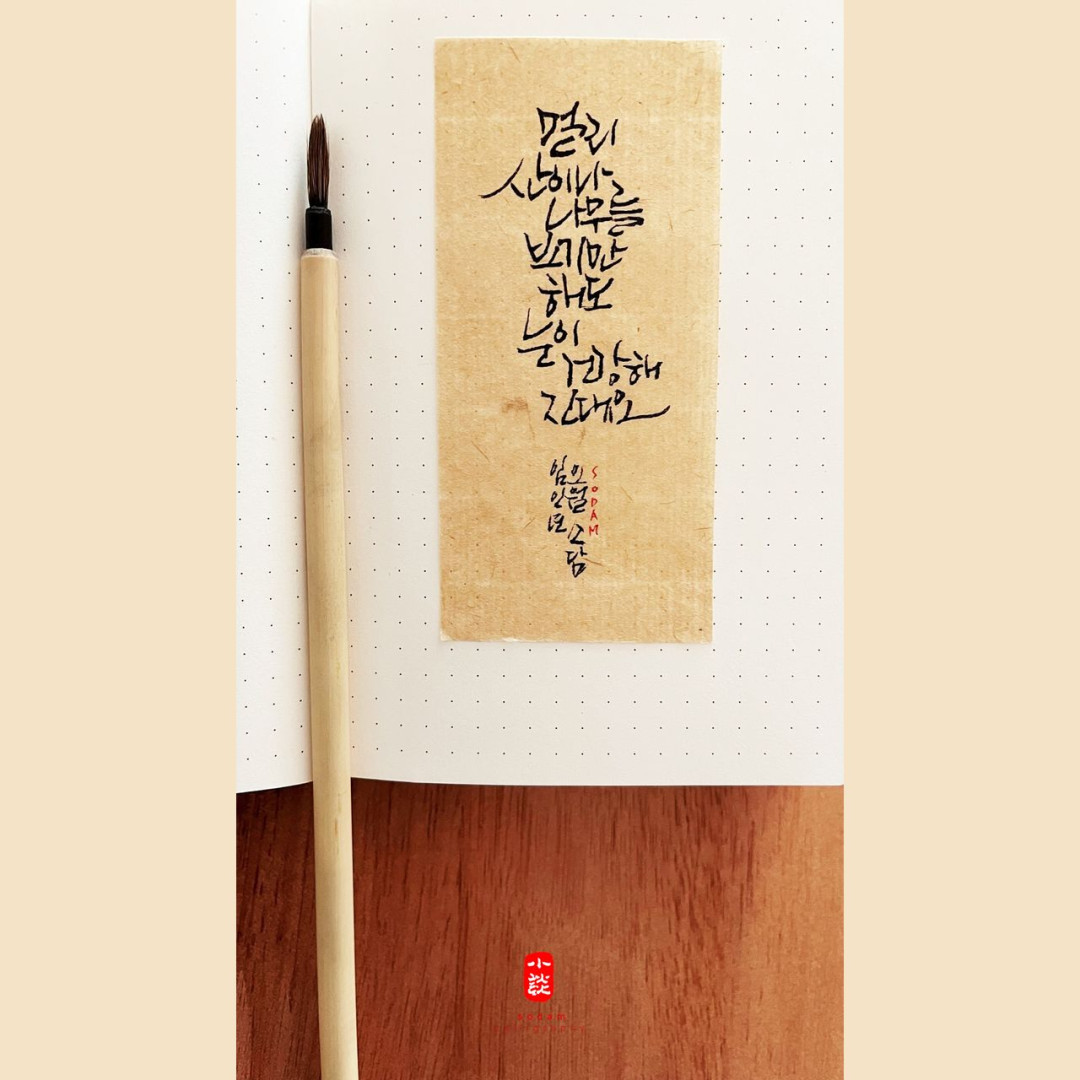 멀리
산이나
나무를
보기만
해도
눈이
건강해
진대요
임인년
오월 소담
SODAM
小談
sodam